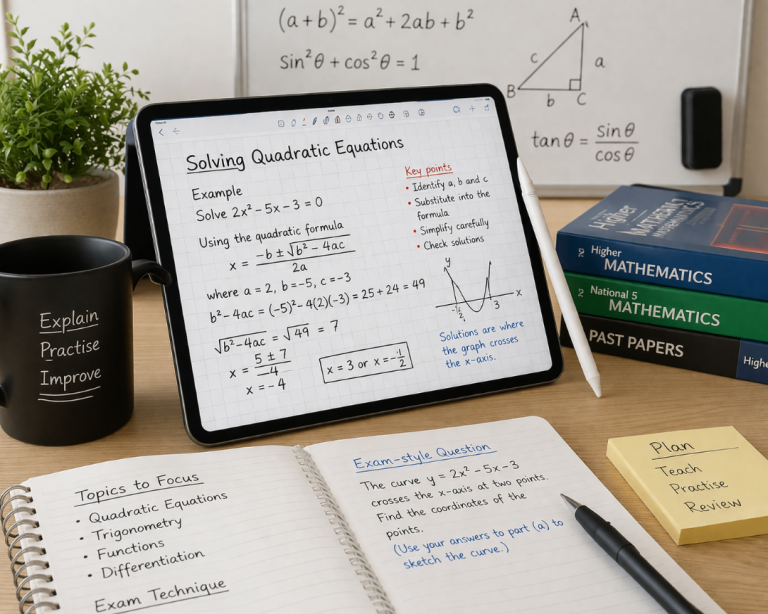 (a + b)² = a² + 2ab + b²
sin²θ + cos²θ = 1
A
c
a
B
b
C
tan θ = sin θ / cos θ
Solving Quadratic Equations
Example
Solve 2x² − 5x − 3 = 0
Using the quadratic formula
x = −b ± √b² − 4ac / 2a
where a = 2, b = −5, c = −3
b² − 4ac = (−5)² − 4(2)(−3) = 25 + 24 = 49
√b² − 4ac = √49 = 7
x = 5 ± 7 / 4
x = −4
x = 3 or x = −1/2
Key points
• Identify a, b and c
• Substitute into the
formula
• Simplify carefully
• Check solutions
y
x
−1/2
3
Solutions are where
the graph crosses
the x-axis.
Explain
Practise
Improve
Higher
MATHEMATICS
Higher
MATHEMATICS
2 National 5
MATHEMATICS
PAST PAPERS
Highe
Topics to Focus
• Quadratic Equations
• Trigonometry
• Functions
• Differentiation
Exam Technique
Exam-style Question
The curve y = 2x² − 5x − 3
crosses the x-axis at two points.
Find the coordinates of the
points.
(Use your answers to part (a) to
sketch the curve.)
Plan
Teach
Practise
Review